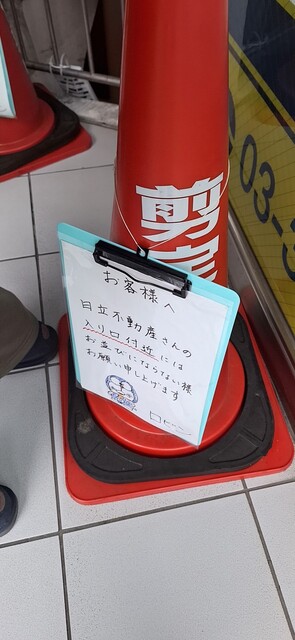 剪宗
お客様へ
日立不動産さんの
入り口付近には
お並びにならない様
お願い申し上げます
03-3